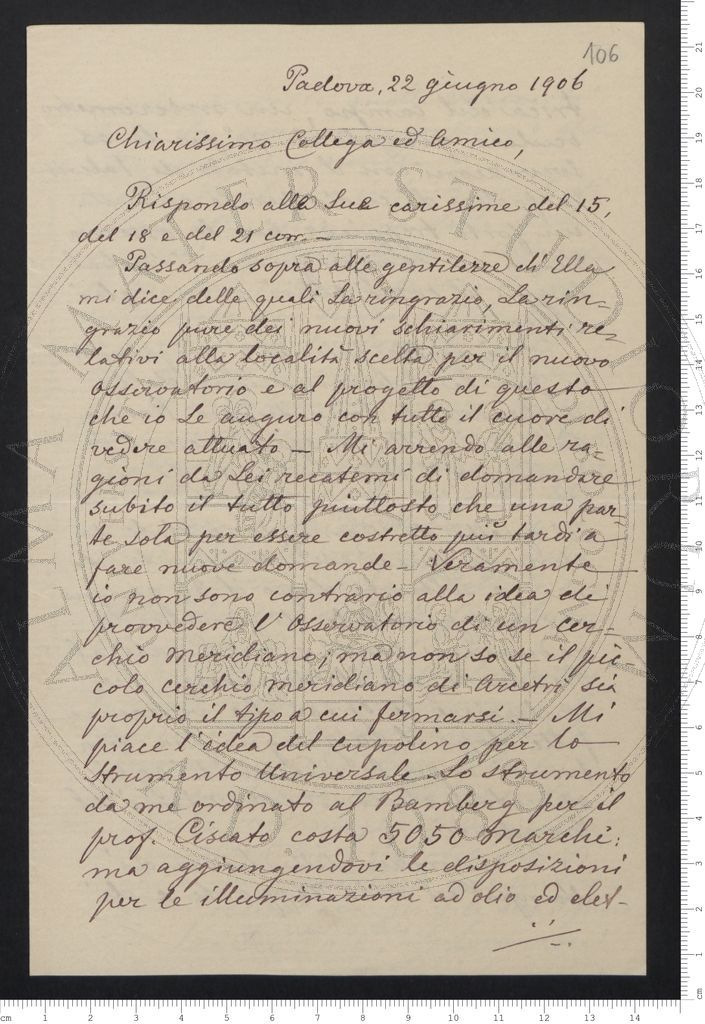 106
Padova, 22 giugno 1906
Chiarissimo Collega ed Amico,
Rispondo alle Sue carissime del 15,
del 18 e del 21 corr. –
Passando sopra alle gentilezze ch'Ella
mi dice delle quali La ringrazio, La rin=
grazio pure dei nuovi schiarimenti re=
lativi alla località scelta per il nuovo
Osservatorio e al progetto di questo
che io Le auguro con tutto il cuore di
vedere attuato – Mi arrendo alle ra=
gioni da Lei recatemi di domandare
subito il tutto piuttosto che una par=
te sola per essere costretto più tardi a
fare nuove domande – Veramente
io non sono contrario alla idea di
provvedere l'Osservatorio di un cer=
chio meridiano; ma non so se il pic
colo cerchio meridiano di Arcetri sia
proprio il tipo a cui fermarsi. – Mi
piace l'idea del cupolino per lo
strumento Universale. Lo strumento
da me ordinato al Bamberg per il
prof. Ciscato costa 5050 marchi:
ma aggiungendovi le disposizioni
per le illuminazioni ad olio ed elet-
./.
ALMA MATER STUDIORUM
A.D. 1088